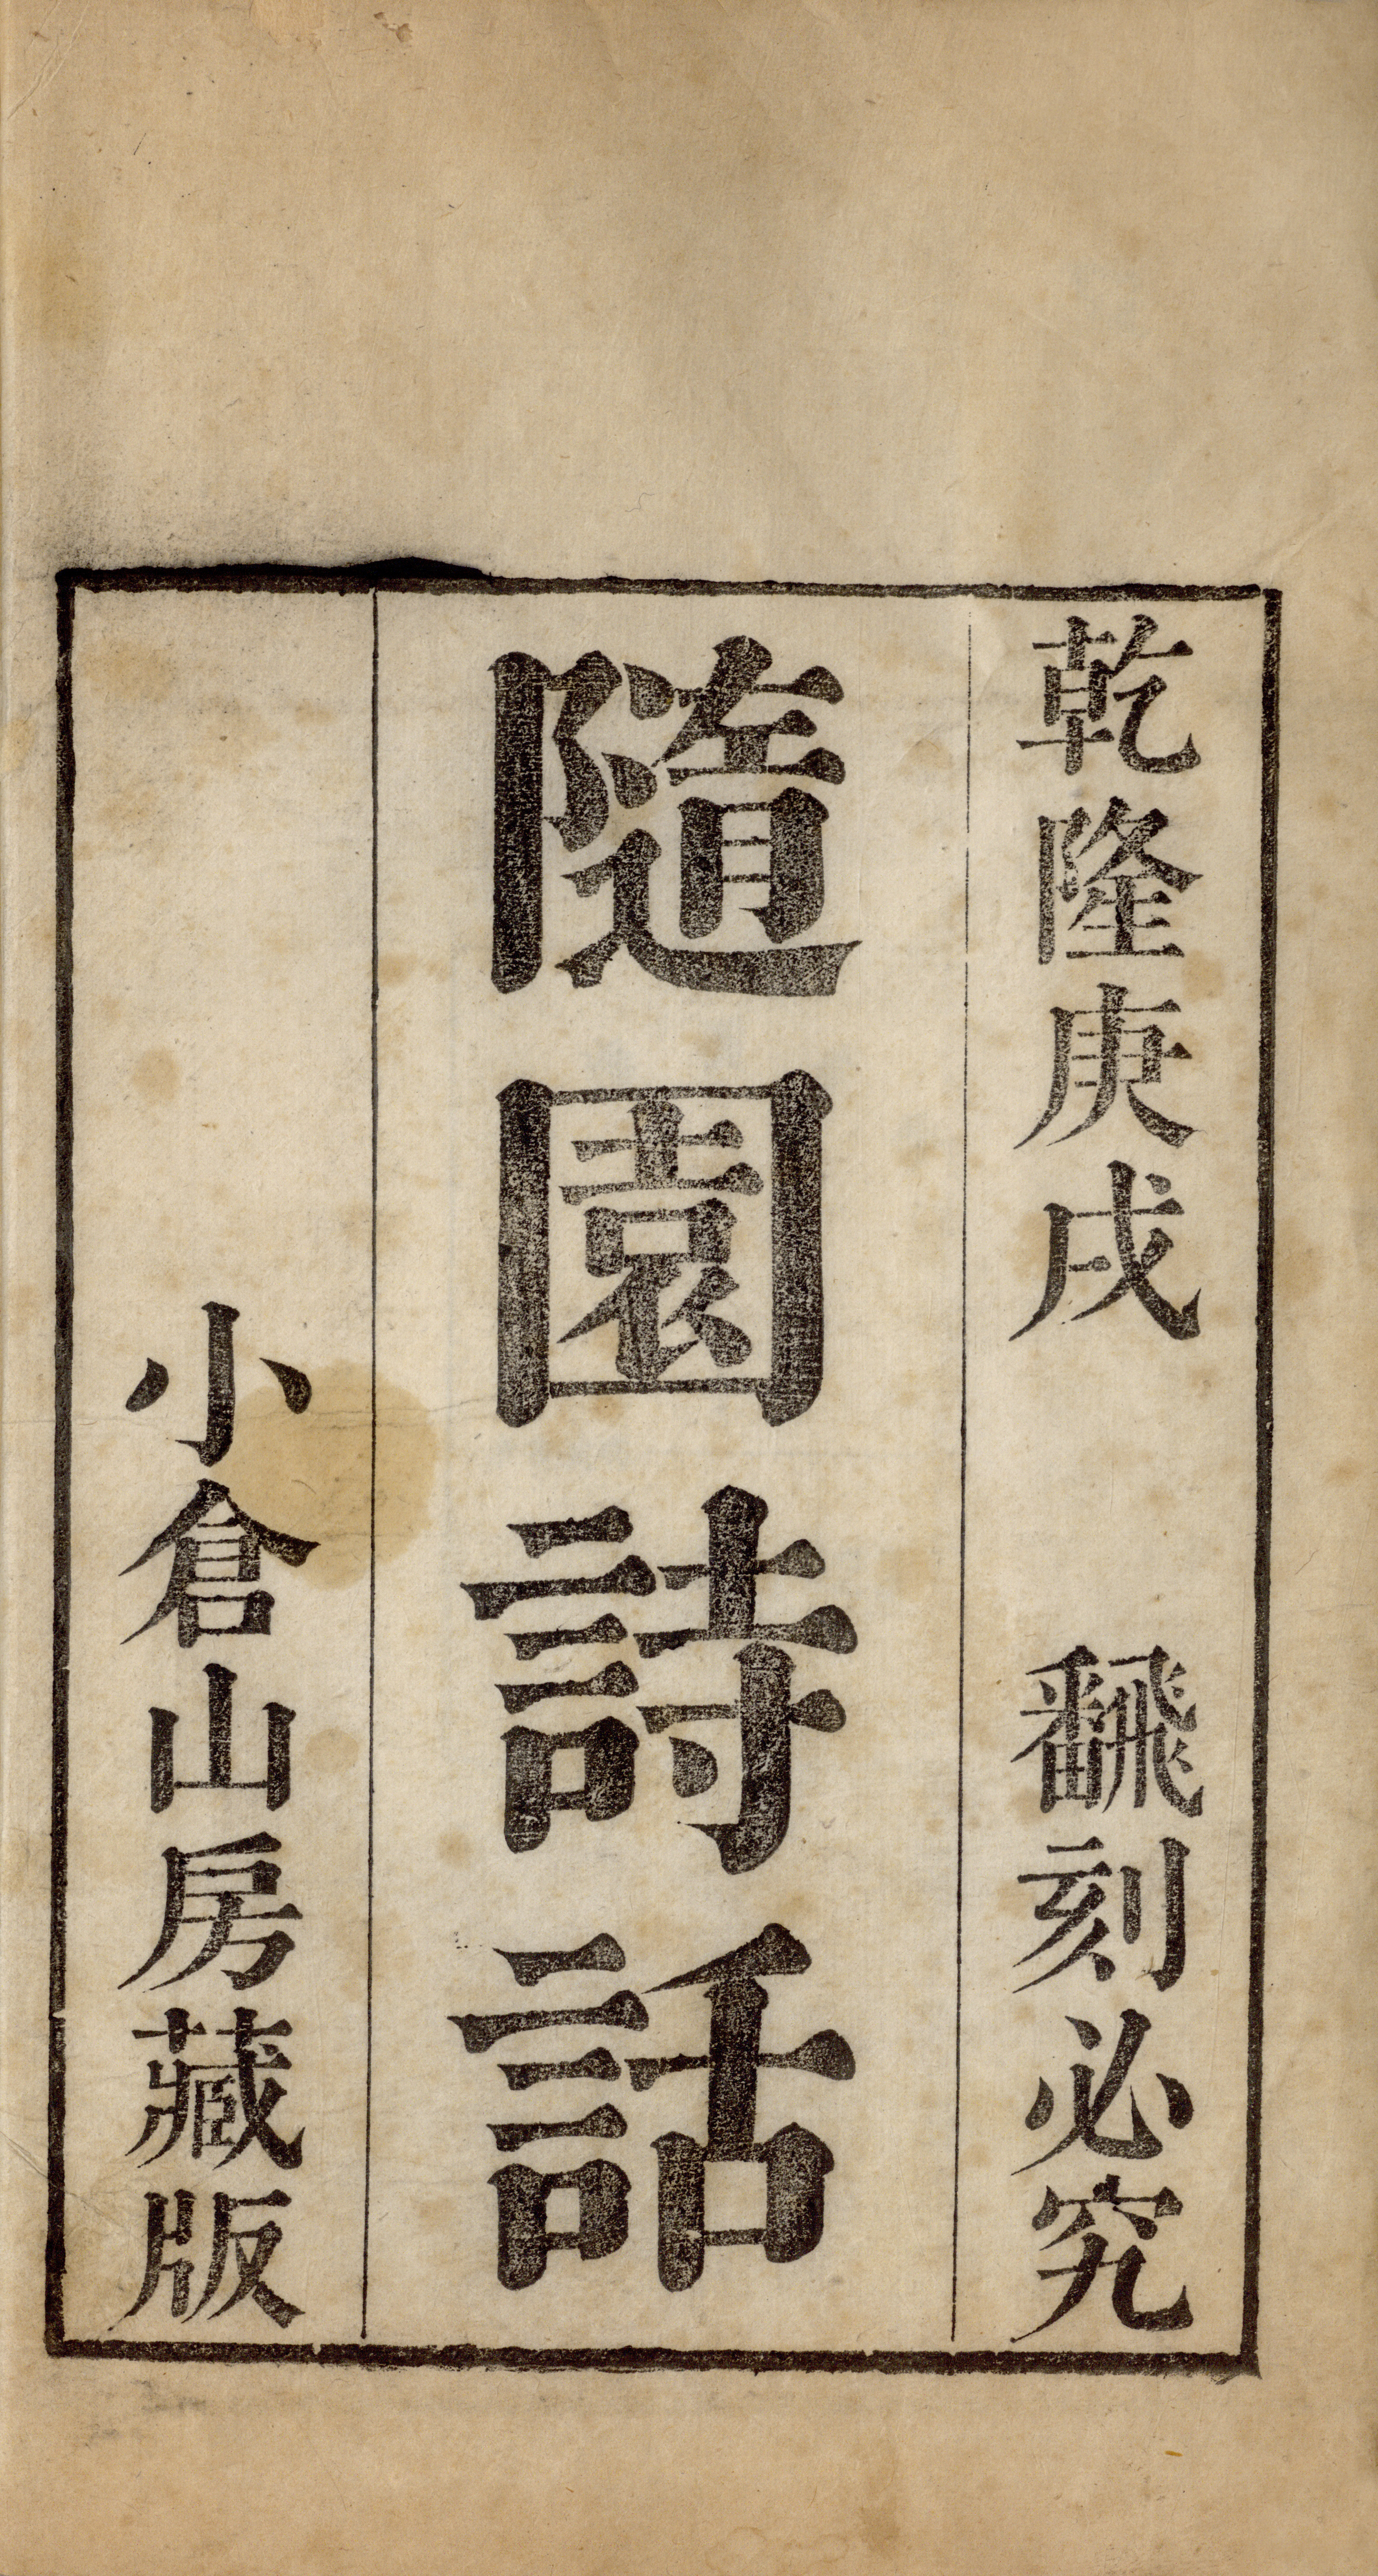 乾隆庚戌 飜刻必究
隨園詩話
小倉山房藏版